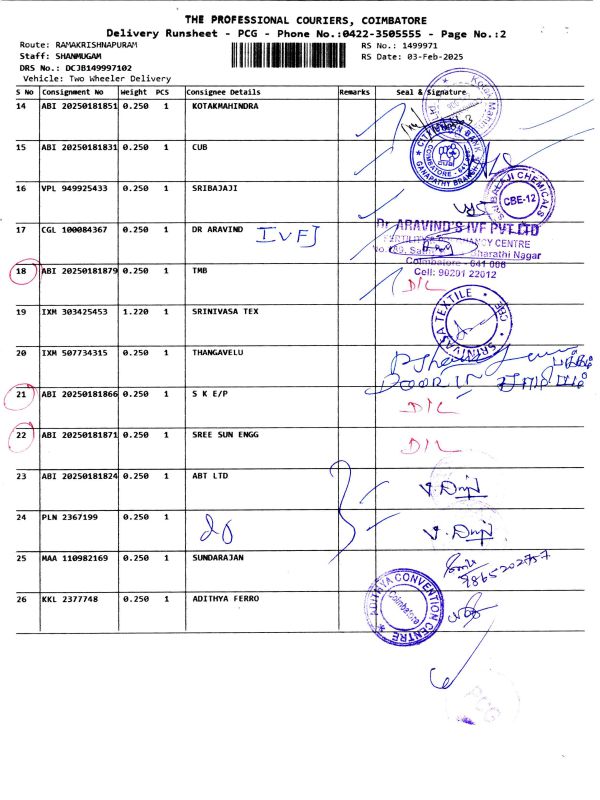 THE PROFESSIONAL COURIERS, COIMBATORE
Delivery Runsheet - PCG - Phone No.:0422-3505555 - Page No.:2
Route: RAMAKRISHNAPURAM
RS No.: 1499971
Staff: SHANMUGAM
RS Date: 03-Feb-2025
DRS No.: DCJB149997102
Vehicle: Two Wheeler Delivery
S No Consignment No Weight PCS Consignee Details Remarks Seal & Signature
14 ABI 20250181851 0.250 1 KOTAKMAHINDRA
CITY UNION BANK
COIMBATORE
GANAPATHY BRANCH
15 ABI 20250181831 0.250 1 CUB
16 VPL 949925433 0.250 1 SRIBAJAJI
SRI BALAJI CHEMICALS
CBE-12
17 CGL 100084367 0.250 1 DR ARAVIND IVF
Dr. ARAVIND'S IVF PVT LTD
FERTILITY & PREGNANCY CENTRE
Bharathi Nagar
Coimbatore - 641 006
Cell: 90201 22012
18 ABI 20250181879 0.250 1 TMB D/L
19 IXM 303425453 1.220 1 SRINIVASA TEX
SRINIVASA TEXTILE
CBE
20 IXM 507734315 0.250 1 THANGAVELU
DOOR IN
21 ABI 20250181866 0.250 1 S K E/P D/L
22 ABI 20250181871 0.250 1 SREE SUN ENGG D/L
23 ABI 20250181824 0.250 1 ABT LTD
24 PLN 2367199 0.250 1 do
25 MAA 110982169 0.250 1 SUNDARAJAN
26 KKL 2377748 0.250 1 ADITHYA FERRO
ADITHYA CONVENTION CENTRE
Coimbatore
PCG